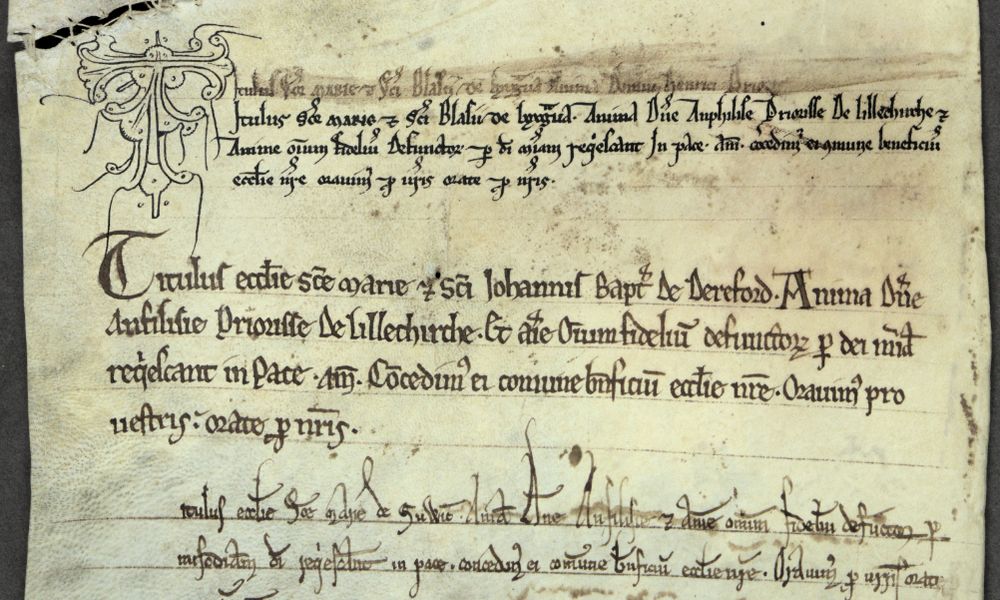 Titulus Sce marie ⁊ Sci Blasii de Anima Domini henrici Prioris
Titulus Sce marie ⁊ Sci Blasii de Anima Dne Anphilisie Priorisse De lillechirche ⁊
Anime oium fideliu Defunctor p di miam reqiescant In pace. Am. cocedim ei cmune beneficiu
ecclie nre oravim p vris orate p nris.
Titulus ecclie sce marie ⁊ sci Johannis Bapt De Dereford. Anima Dne
Anfilisie Priorisse De lillechirche. Et aie Oium fidelium defunctoꝝ p dei mia
reqiescant in Pace. Am. Cocedim ei comune bnficiu ecclie nre. Oravim pro
vestris. orate p nris.
itulus ecclie Sce Marie de Suwic. Aia Dne Anfilisie ⁊ Aime omium fidelium defunctoꝝ p
misericordiam di reqiescant in pace. concedim ei comune bnficiu ecclie nre. Oravim p vris orate